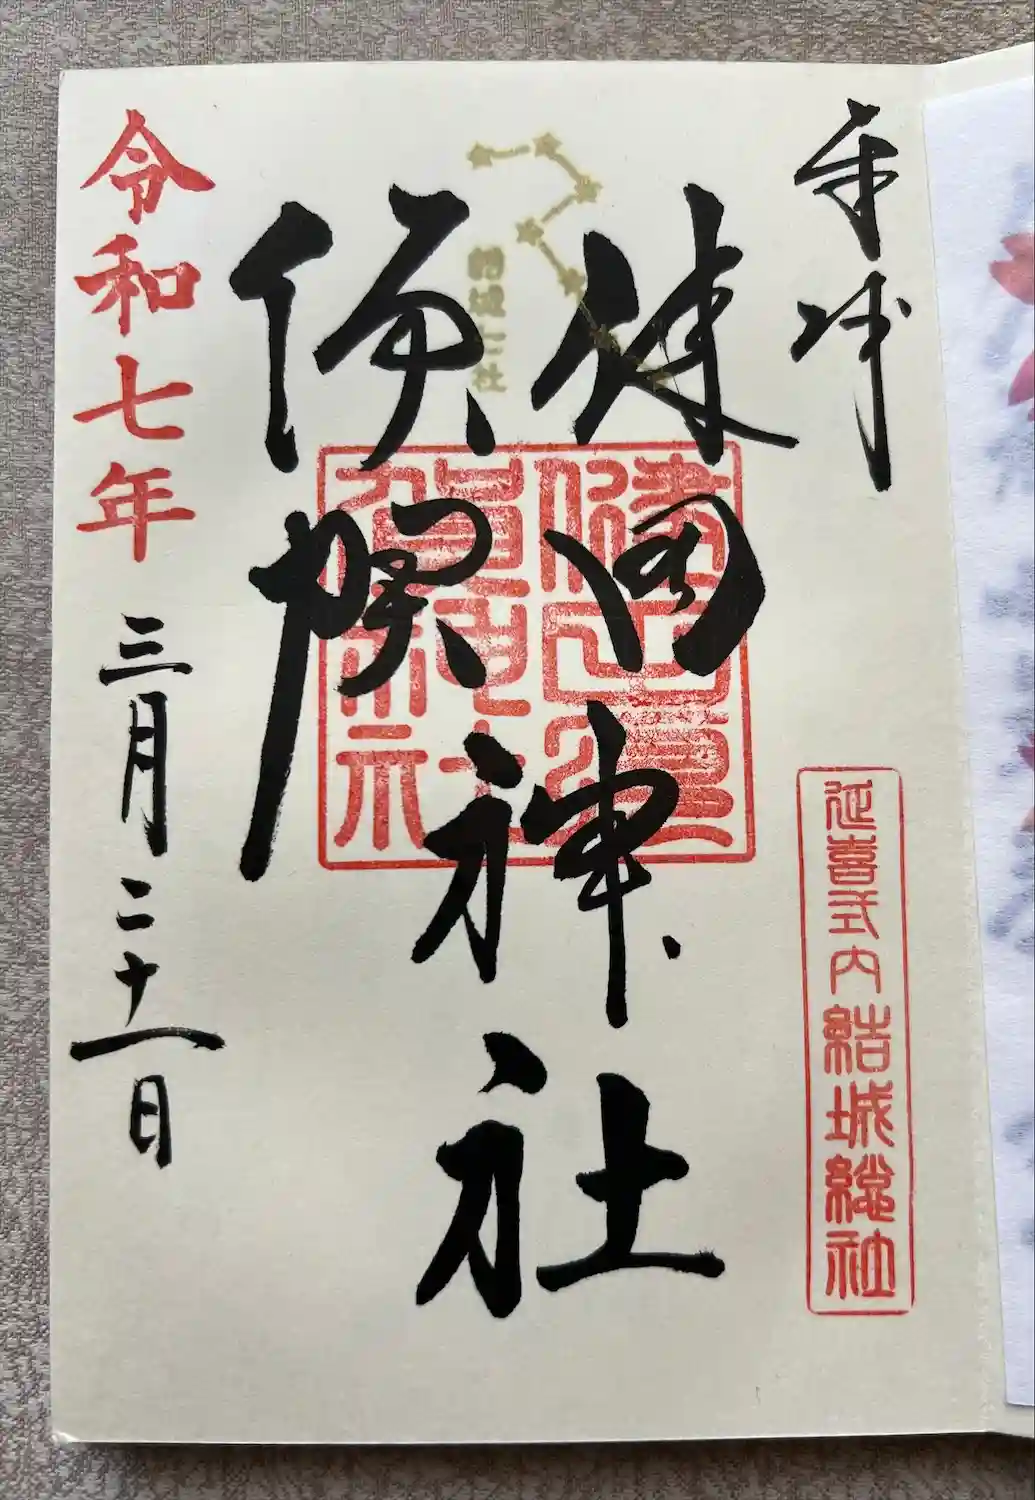 奉拝
延喜式内 結城総社
健田
須賀
神社
結城七社
令和七年三月二十一日